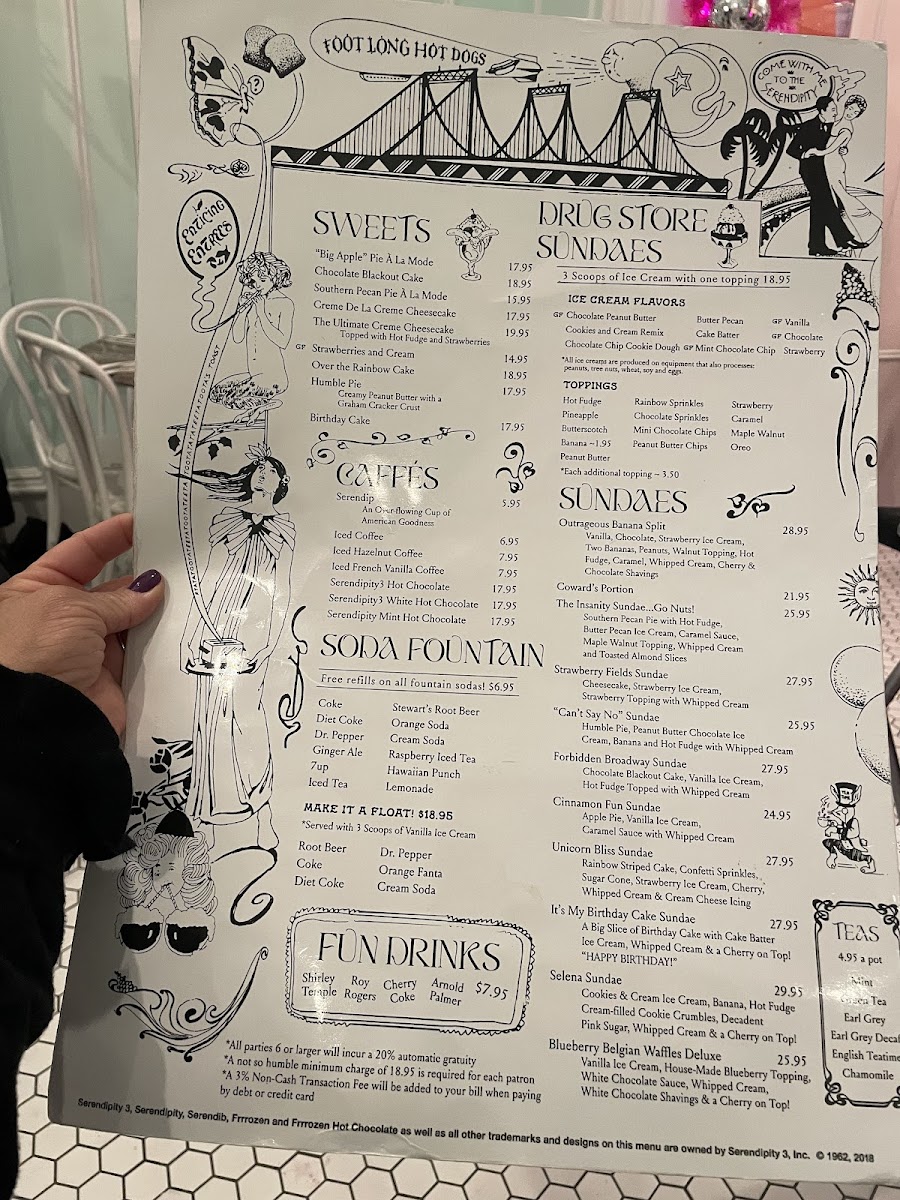 FOOT LONG HOT DOGS
COME WITH ME
TO THE
SERENDIPITY
Enticing
Entrees
SWEETS
"Big Apple" Pie À La Mode 17.95
Chocolate Blackout Cake 18.95
Southern Pecan Pie À La Mode 15.95
Creme De La Creme Cheesecake 17.95
The Ultimate Creme Cheesecake 19.95
Topped with Hot Fudge and Strawberries
GF Strawberries and Cream 14.95
Over the Rainbow Cake 18.95
Humble Pie 17.95
Creamy Peanut Butter with a
Graham Cracker Crust
Birthday Cake 17.95
CAFFÉS
Serendip 5.95
An Over-flowing Cup of
American Goodness
Iced Coffee 6.95
Iced Hazelnut Coffee 7.95
Iced French Vanilla Coffee 7.95
Serendipity3 Hot Chocolate 17.95
Serendipity3 White Hot Chocolate 17.95
Serendipity Mint Hot Chocolate 17.95
SODA FOUNTAIN
Free refills on all fountain sodas! $6.95
Coke Stewart's Root Beer
Diet Coke Orange Soda
Dr. Pepper Cream Soda
Ginger Ale Raspberry Iced Tea
7up Hawaiian Punch
Iced Tea Lemonade
MAKE IT A FLOAT! $18.95
*Served with 3 Scoops of Vanilla Ice Cream
Root Beer Dr. Pepper
Coke Orange Fanta
Diet Coke Cream Soda
FUN DRINKS
Shirley Roy Cherry Arnold $7.95
Temple Rogers Coke Palmer
*All parties 6 or larger will incur a 20% automatic gratuity
*A not so humble minimum charge of 18.95 is required for each patron
*A 3% Non-Cash Transaction Fee will be added to your bill when paying
by debit or credit card
DRUG STORE
SUNDAES
3 Scoops of Ice Cream with one topping 18.95
ICE CREAM FLAVORS
GF Chocolate Peanut Butter Butter Pecan GF Vanilla
Cookies and Cream Remix Cake Batter GF Chocolate
Chocolate Chip Cookie Dough GF Mint Chocolate Chip Strawberry
*All ice creams are produced on equipment that also processes:
peanuts, tree nuts, wheat, soy and eggs.
TOPPINGS
Hot Fudge Rainbow Sprinkles Strawberry
Pineapple Chocolate Sprinkles Caramel
Butterscotch Mini Chocolate Chips Maple Walnut
Banana ~1.95 Peanut Butter Chips Oreo
Peanut Butter
*Each additional topping ~ 3.50
SUNDAES
Outrageous Banana Split 28.95
Vanilla, Chocolate, Strawberry Ice Cream,
Two Bananas, Peanuts, Walnut Topping, Hot
Fudge, Caramel, Whipped Cream, Cherry &
Chocolate Shavings
Coward's Portion 21.95
The Insanity Sundae...Go Nuts! 25.95
Southern Pecan Pie with Hot Fudge,
Butter Pecan Ice Cream, Caramel Sauce,
Maple Walnut Topping, Whipped Cream
and Toasted Almond Slices
Strawberry Fields Sundae 27.95
Cheesecake, Strawberry Ice Cream,
Strawberry Topping with Whipped Cream
"Can't Say No" Sundae 25.95
Humble Pie, Peanut Butter Chocolate Ice
Cream, Banana and Hot Fudge with Whipped Cream
Forbidden Broadway Sundae 27.95
Chocolate Blackout Cake, Vanilla Ice Cream,
Hot Fudge Topped with Whipped Cream
Cinnamon Fun Sundae 24.95
Apple Pie, Vanilla Ice Cream,
Caramel Sauce with Whipped Cream
Unicorn Bliss Sundae 27.95
Rainbow Striped Cake, Confetti Sprinkles,
Sugar Cone, Strawberry Ice Cream, Cherry,
Whipped Cream & Cream Cheese Icing
It's My Birthday Cake Sundae 27.95
A Big Slice of Birthday Cake with Cake Batter
Ice Cream, Whipped Cream & a Cherry on Top!
"HAPPY BIRTHDAY!"
Selena Sundae 29.95
Cookies & Cream Ice Cream, Banana, Hot Fudge
Cream-filled Cookie Crumbles, Decadent
Pink Sugar, Whipped Cream & a Cherry on Top!
Blueberry Belgian Waffles Deluxe 25.95
Vanilla Ice Cream, House-Made Blueberry Topping,
White Chocolate Sauce, Whipped Cream,
White Chocolate Shavings & a Cherry on Top!
TEAS
4.95 a pot
Mint
Green Tea
Earl Grey
Earl Grey Decaf
English Teatime
Chamomile
Serendipity 3, Serendipity, Serendib, Frrrozen and Frrrozen Hot Chocolate as well as all other trademarks and designs on this menu are owned by Serendipity 3, Inc. © 1962, 2018